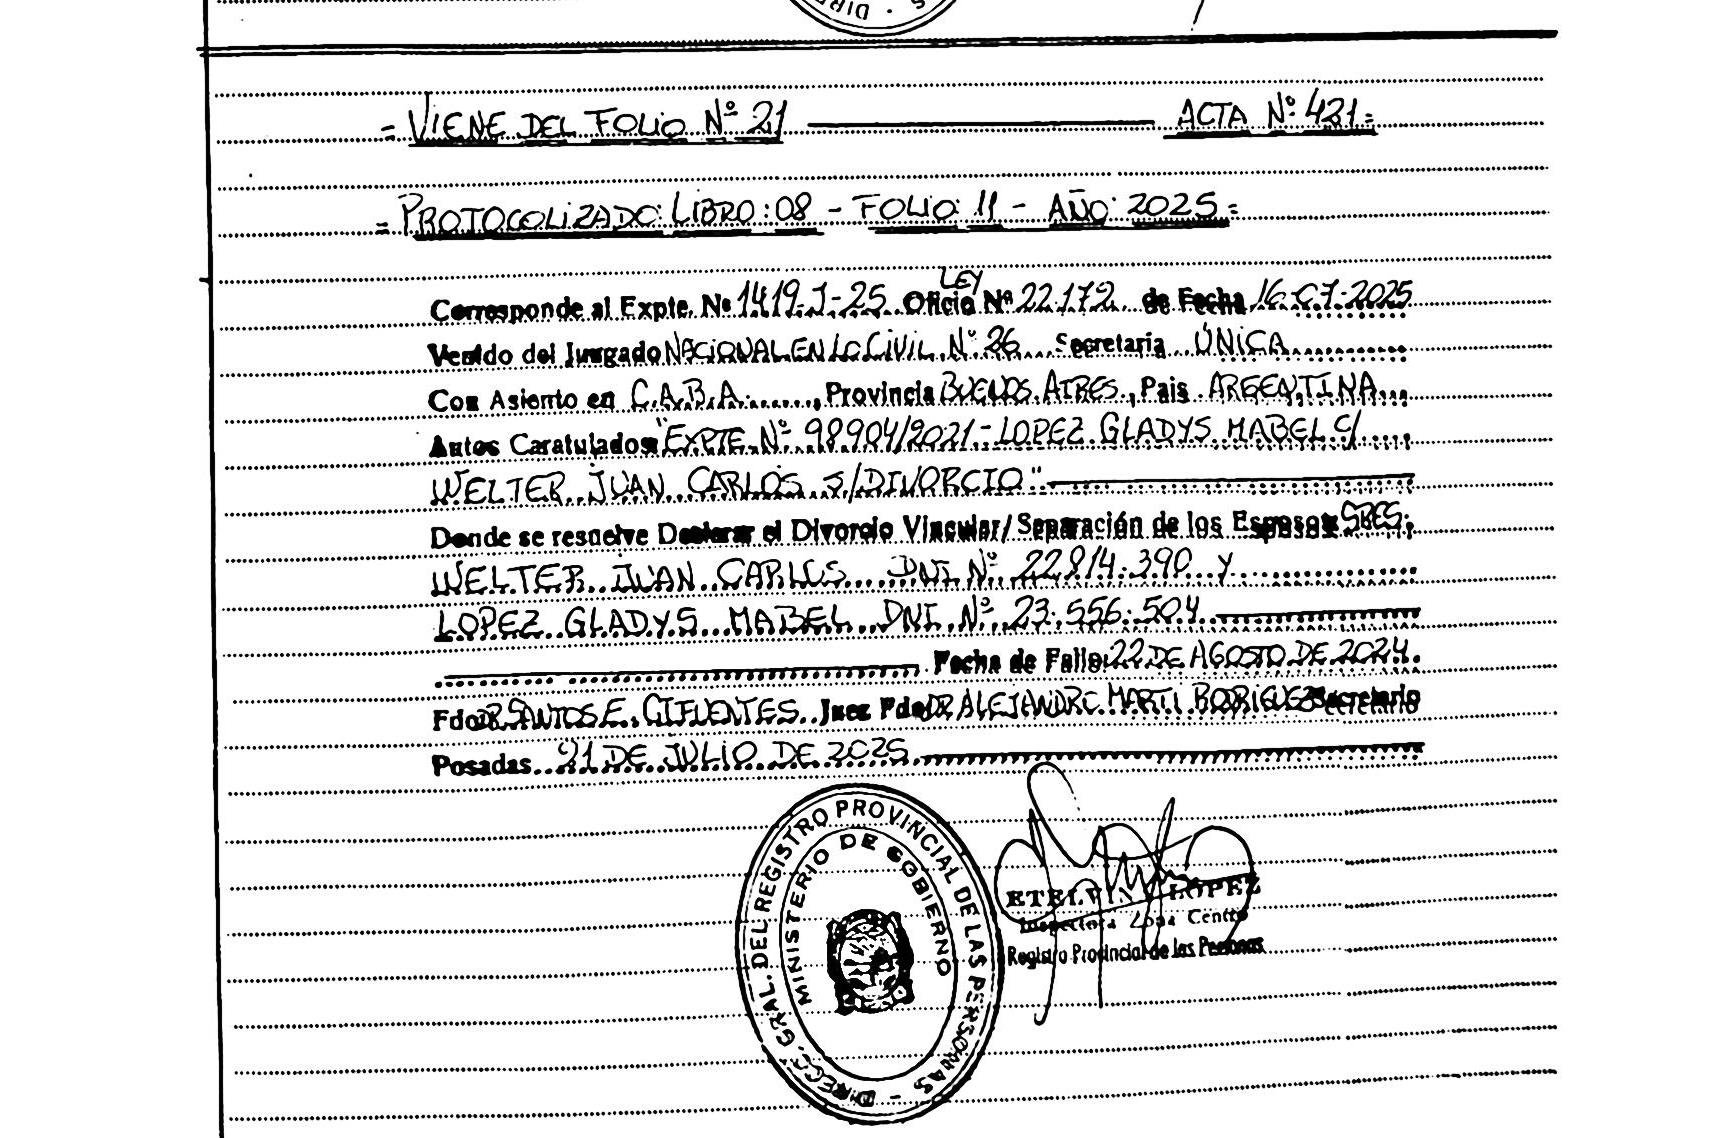 DIRE
= VIENE DEL FOLIO Nº 21 ACTA Nº 421 =
= PROTOCOLIZADO: LIBRO: 08 - FOLIO: 11 - AÑO: 2025 =
LEY
Corresponde al Expte. Nº 1419-J-25 Oficio Nº 22.172 de Fecha 16.07.2025
Venido del Juzgado NACIONAL EN LO CIVIL Nº 26 Secretaria ÚNICA
Con Asiento en C.A.B.A. , Provincia BUENOS AIRES , Pais ARGENTINA
Autos Caratulados "EXPTE. Nº 98904/2021 - LOPEZ GLADYS MABEL C/
WELTER JUAN CARLOS S/DIVORCIO"
Donde se resuelve Declarar el Divorcio Vincular/Separación de los Esposos SRES:
WELTER JUAN CARLOS DNI Nº 22.814.390 Y
LOPEZ GLADYS MABEL DNI Nº 23.556.504
Fecha de Fallo: 22 DE AGOSTO DE 2024.
Fdo: DR. SANTOS E. CIFUENTES Juez Fdo: DR ALEJANDRO MARTI RODRIGUEZ Secretario
Posadas 21 DE JULIO DE 2025
DIRECC. GRAL. DEL REGISTRO PROVINCIAL DE LAS PERSONAS -
MINISTERIO DE GOBIERNO
LOPEZ
Inspectora Zona Centro
Registro Provincial de las Personas